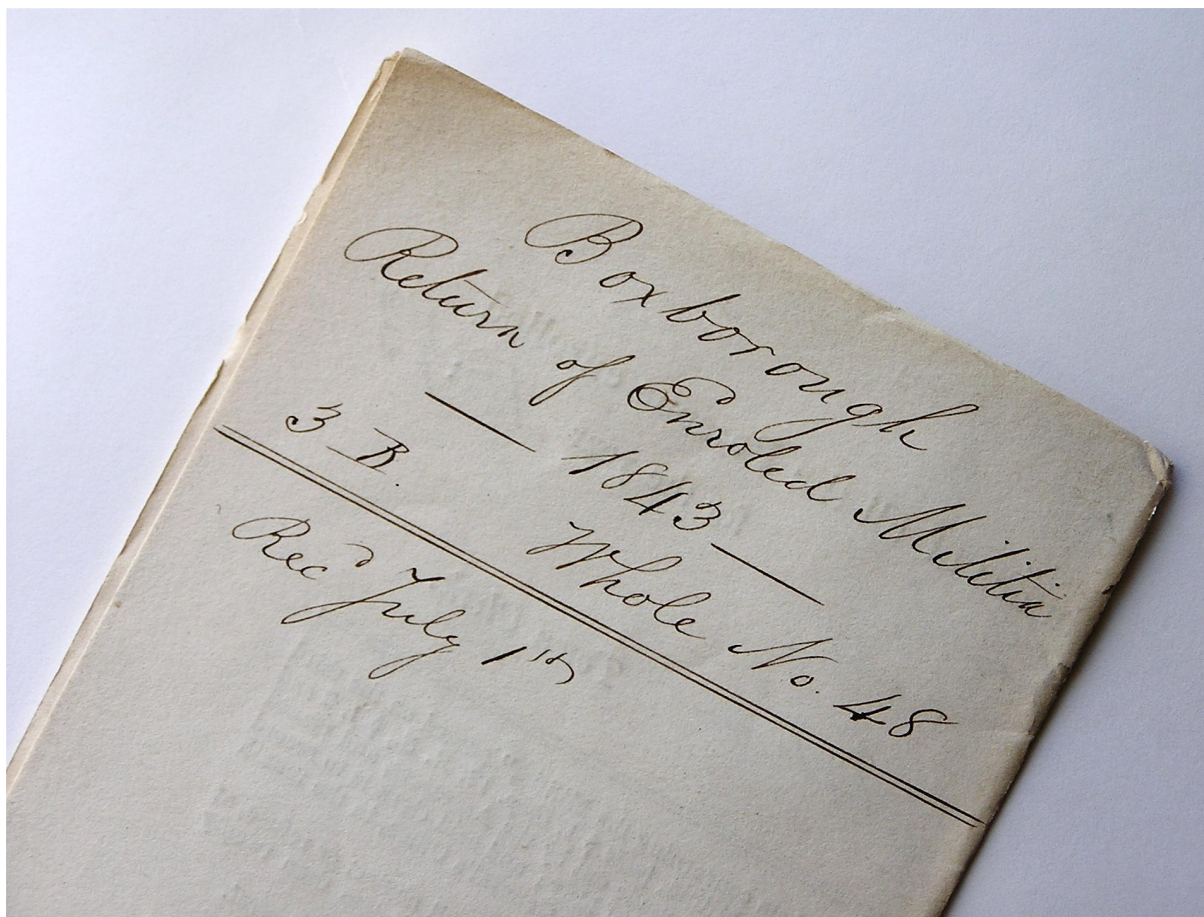 Boxborough
Return of Enroled Militia
— 1843 —
3 R. Whole No. 48
Rec'd July 1st